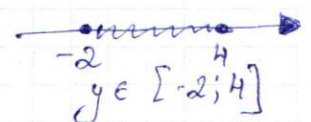 -2 4
y ∈ [-2; 4]